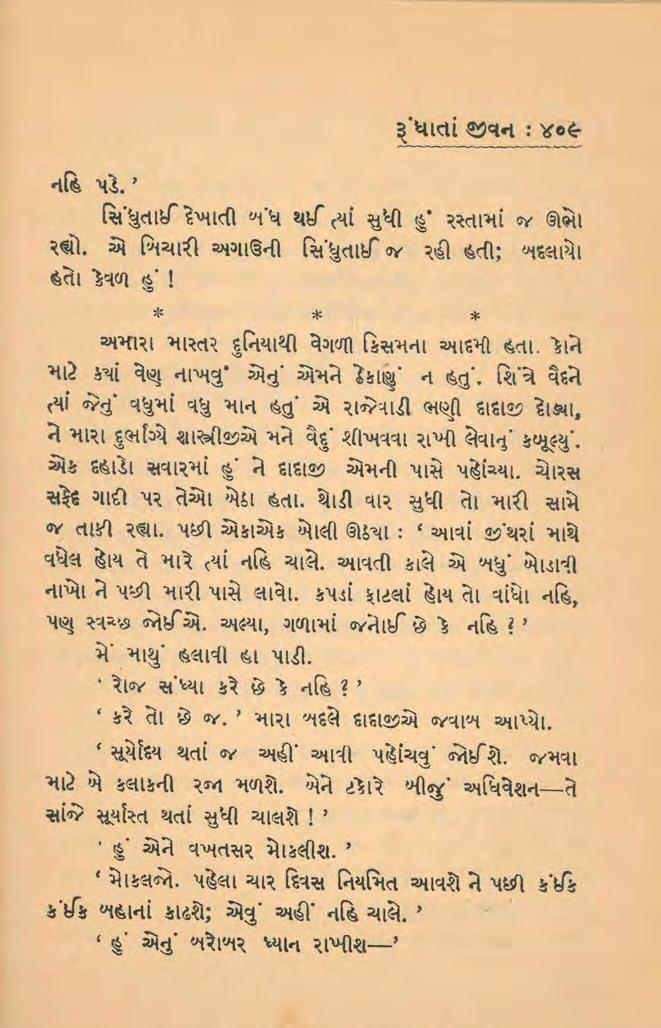 રૂંધાતાં જીવન : ૪૦૯
નહિ પડે.’
સિંધુતાઈ દેખાતી બંધ થઈ ત્યાં સુધી હું રસ્તામાં જ ઊભો
રહ્યો. એ બિચારી અગાઉની સિંધુતાઈ જ રહી હતી; બદલાયો
હતો કેવળ હું !
* * *
અમારા માસ્તર દુનિયાથી વેગળી કિસમના આદમી હતા. કોને
માટે કયાં વેણ નાખવું એનું એમને ઠેકાણું ન હતું. શિંત્રે વૈદને
ત્યાં જેનું વધુમાં વધુ માન હતું એ રાજેવાડી ભણી દાદાજી દોડ્યા,
ને મારા દુર્ભાગ્યે શાસ્ત્રીજીએ મને વૈદું શીખવવા રાખી લેવાનું કબૂલ્યું.
એક દહાડો સવારમાં હું ને દાદાજી એમની પાસે પહોંચ્યા. ચોરસ
સફેદ ગાદી પર તેઓ બેઠા હતા. થોડી વાર સુધી તો મારી સામે
જ તાકી રહ્યા. પછી એકાએક બોલી ઊઠયા : ‘ આવાં જીંથરાં માથે
વધેલ હોય તે મારે ત્યાં નહિ ચાલે. આવતી કાલે એ બધું બોડાવી
નાખો ને પછી મારી પાસે લાવો. કપડાં ફાટલાં હોય તો વાંધો નહિ,
પણ સ્વચ્છ જોઈએ. અલ્યા, ગળામાં જનોઈ છે કે નહિ ?’
મેં માથું હલાવી હા પાડી.
‘ રોજ સંધ્યા કરે છે કે નહિ ?’
‘ કરે તો છે જ. ’ મારા બદલે દાદાજીએ જવાબ આપ્યો.
‘ સૂર્યોદય થતાં જ અહીં આવી પહોંચવું જોઈશે. જમવા
માટે બે કલાકની રજા મળશે. બેને ટકોરે બીજું અધિવેશન—તે
સાંજે સૂર્યાસ્ત થતાં સુધી ચાલશે ! ’
‘ હું એને વખતસર મોકલીશ. ’
‘ મોકલજો. પહેલા ચાર દિવસ નિયમિત આવશે ને પછી કંઈક
કંઈક બહાનાં કાઢશે; એવું અહીં નહિ ચાલે. ’
‘ હું એનું બરોબર ધ્યાન રાખીશ—’